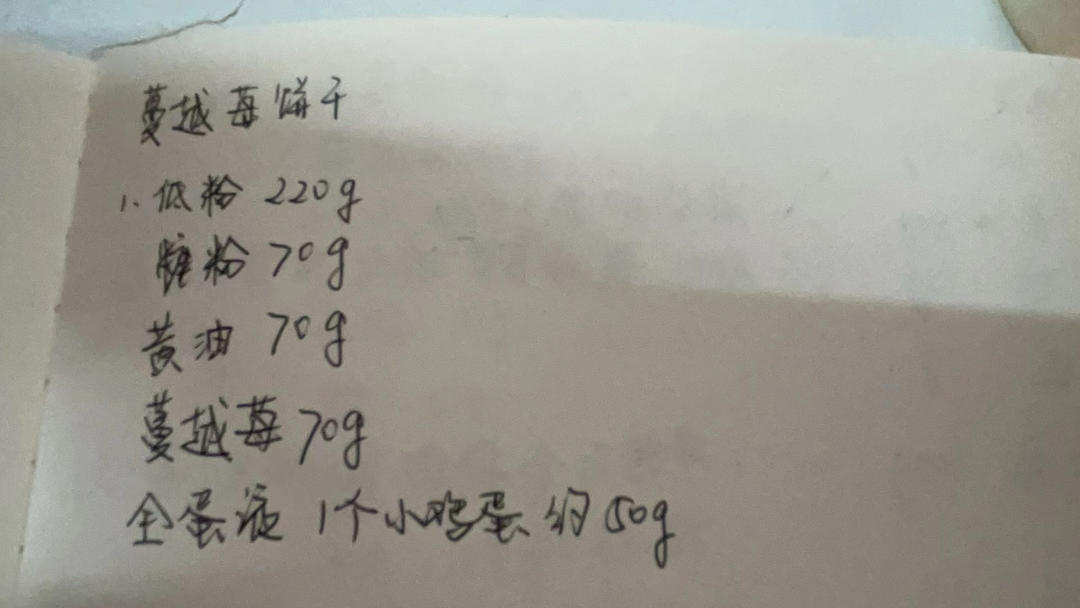 蔓越莓饼干
1. 低粉 220g
糖粉 70g
黄油 70g
蔓越莓 70g
全蛋液 1个小鸡蛋 约50g